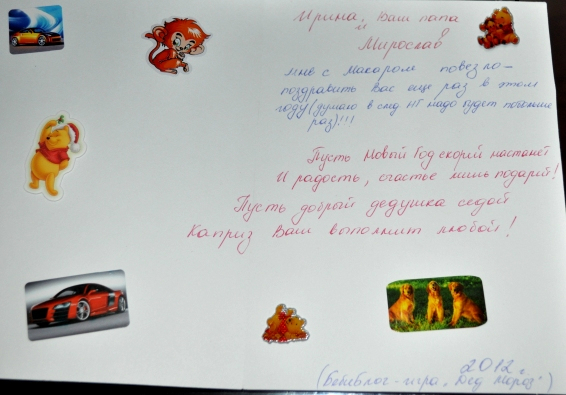 Ирина, Ваш папа
и
Мирослав
мне с Макаром повезло -
поздравить Вас еще раз в этом
году (думаю в след НГ надо будет побольше
раз)!!!
Пусть Новый Год скорей настанет
И радость, счастье лишь подарит!
Пусть добрый дедушка седой
Каприз Ваш выполнит любой!
2012 г.
(Бебиблог-игра "Дед Мороз")